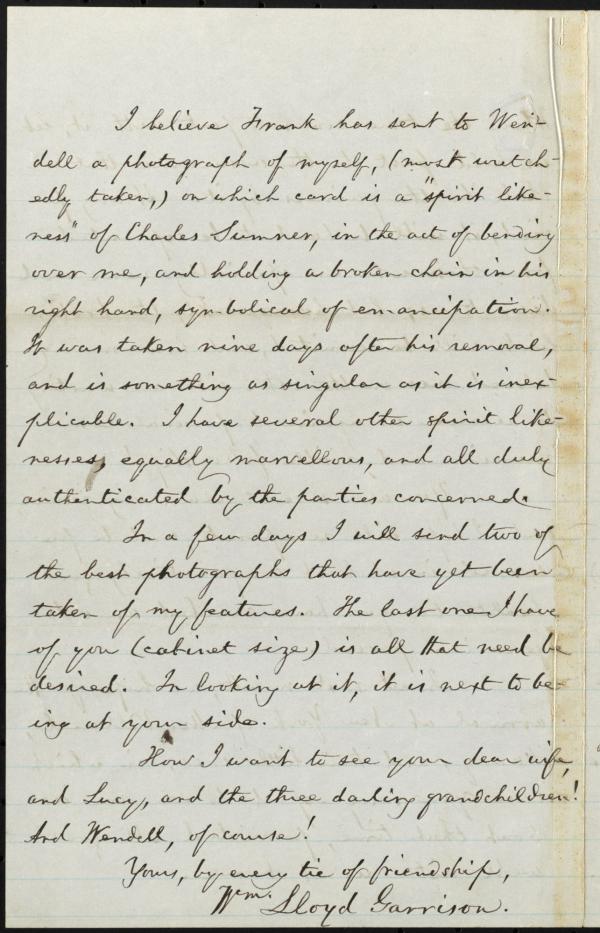 I believe Frank has sent to Wen-
dell a photograph of myself, (most wretch-
edly taken,) on which card is a "spirit like-
ness" of Charles Sumner, in the act of bending
over me, and holding a broken chain in his
right hand, symbolical of emancipation.
It was taken nine days after his removal,
and is something as singular as it is inex-
plicable. I have several other spirit like-
nesses, equally marvellous, and all duly
authenticated by the parties concerned.
In a few days I will send two of
the best photographs that have yet been
taken of my features. The last one I have
of you (cabinet size) is all that need be
desired. In looking at it, it is next to be-
ing at your side.
How I want to see your dear wife,
and Lucy, and the three darling grandchildren!
And Wendell, of course!
Yours, by every tie of friendship,
Wm. Lloyd Garrison.